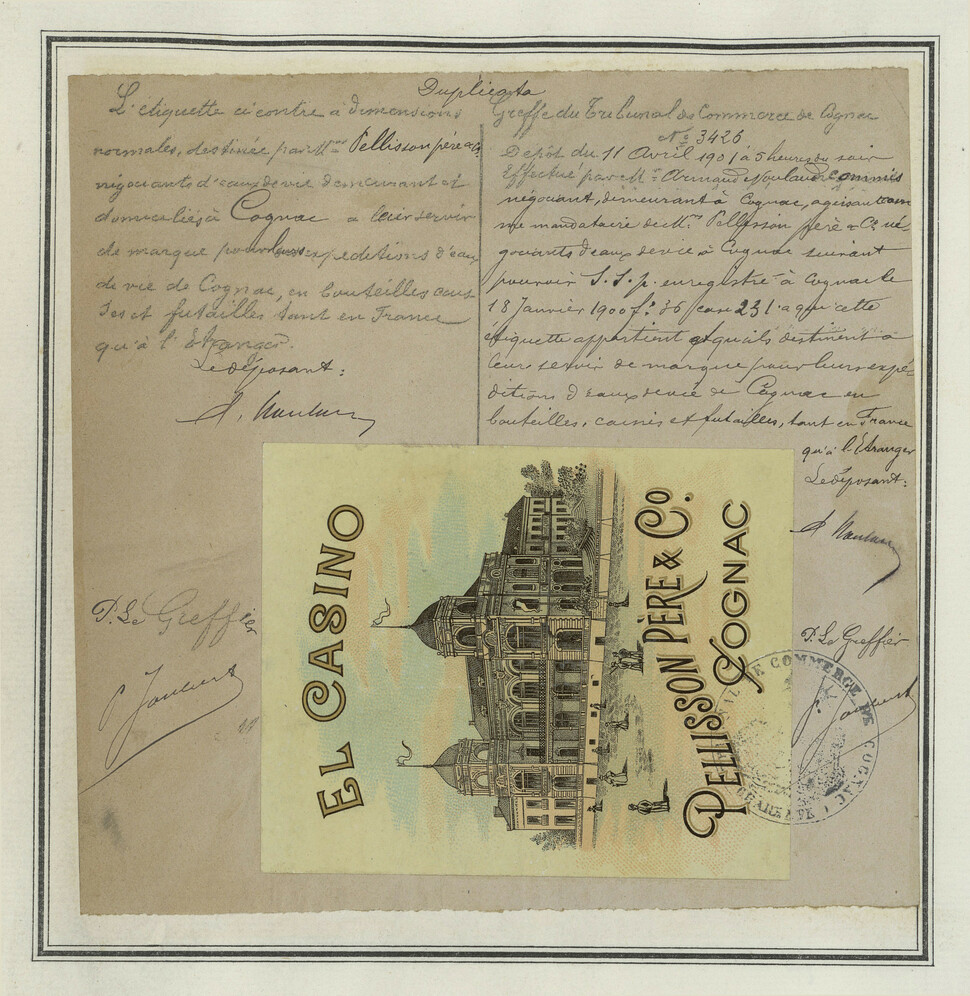 Duplicata
L'étiquette ci contre à dimensions
normales, destinée par Mrs Pellisson père & Co
négociants d'eaux de vie demeurant et
domiciliés à Cognac à leur servir
de marque pour leurs expéditions d'eau
de vie de Cognac, en bouteilles cais
ses et futailles tant en France
qu'à l'Étranger.
Le déposant:
P. Le Greffier
Greffe du Tribunal de Commerce de Cognac
No 3426
Dépôt du 11 Avril 1901 à 5 heures du soir
Effectué par Mr Armand commis
négociant, demeurant à Cognac, agissant com
me mandataire de Mrs Pellisson père & Co né
gociants d'eaux de vie à Cognac suivant
pouvoir S.S.p. enregistré à Cognac le
18 Janvier 1900 fo 36 case 231 a qui cette
étiquette appartient et qu'ils destinent à
leur servir de marque pour leurs expé
ditions d'eaux de vie de Cognac en
bouteilles, caisses et futailles, tant en France
qu'à l'Etranger
Le déposant:
P. Le Greffier
EL CASINO
PELLISSON PÈRE & Co.
COGNAC
DE COMMERCE DE COGNAC
CHARENTE